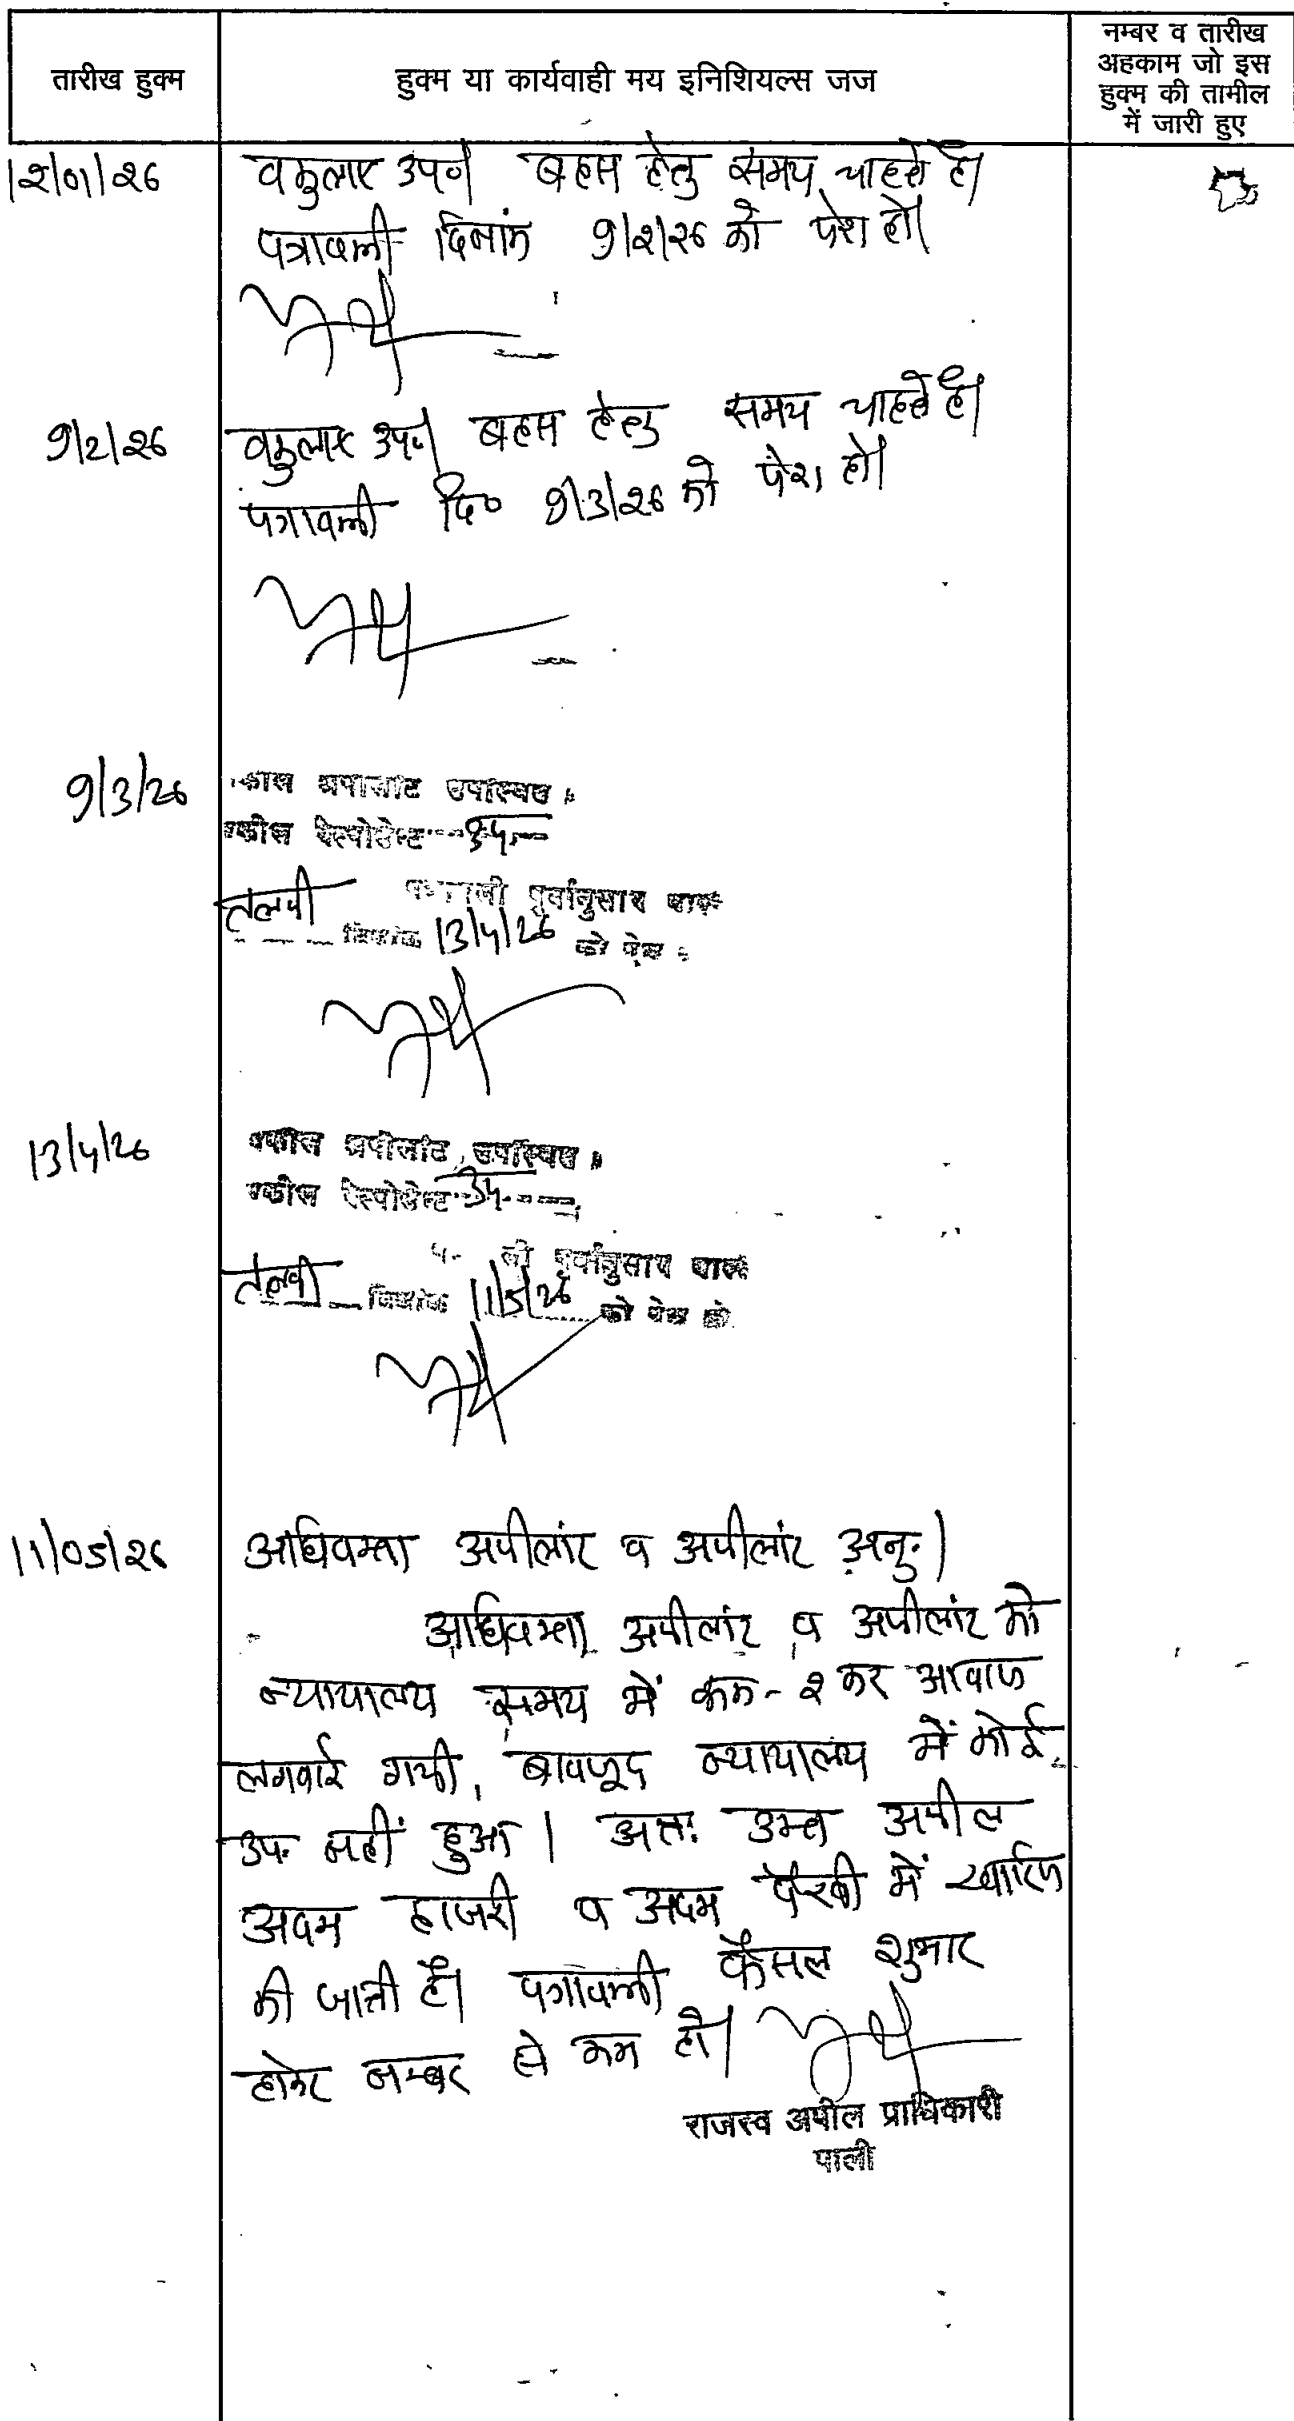 तारीख हुक्म
हुक्म या कार्यवाही मय इनिशियल्स जज
नम्बर व तारीख
अहकाम जो इस
हुक्म की तामील
में जारी हुए
12/01/26
वकुलाए उप०। बहस हेतु समय चाहते है।
पत्रावली दिनांक 9/2/26 को पेश हो।
9/2/26
वकुलाए उप०। बहस हेतु समय चाहते है।
पत्रावली दि० 9/3/26 को पेश हो।
9/3/26
अपीलांट उपस्थित
वकील रेस्पोडेन्ट उप.
पूर्वानुसार वास्ते
तलबी दिनांक 13/4/26 को पेश
13/4/26
वकील अपीलांट उपस्थित
वकील रेस्पोडेन्ट उप.
पूर्वानुसार वास्ते
तलबी दिनांक 11/5/26 को पेश हो
11/05/26
अधिवक्ता अपीलांट व अपीलांट अनु.।
अधिवक्ता अपीलांट व अपीलांट को
न्यायालय समय में रूक-२ कर आवाज
लगवाई गयी, बावजूद न्यायालय में कोई
उप. नहीं हुआ। अतः उक्त अपील
अदम हाजरी व अदम पैरवी में खारिज
की जाती है। पत्रावली फैसल शुमार
होकर नम्बर से कम हो।
राजस्व अपील प्राधिकारी
पाली